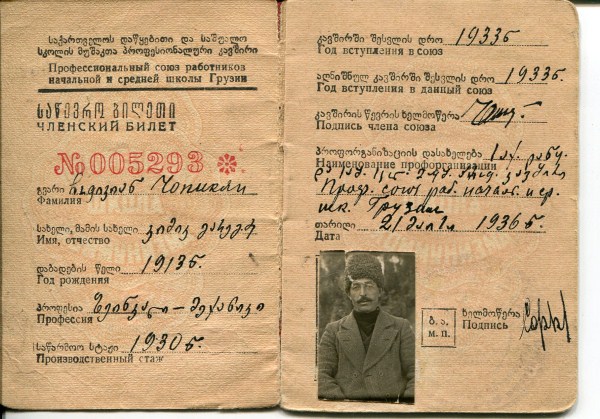 საქართველოს დაწყებითი და საშუალო
სკოლის მუშაკთა პროფესიონალური კავშირი
Профессиональный союз работников
начальной и средней школы Грузии
საწევრო ბილეთი
ЧЛЕНСКИЙ БИЛЕТ
№ 005293
გვარი
Фамилия
სახელი, მამის სახელი
Имя, отчество
დაბადების წელი 1913 წ.
Год рождения
პროფესია ზეინკალი – მექანიკი
Профессия
საწარმოო სტაჟი 1930 წ.
Производственный стаж
კავშირში შესვლის დრო 1933 წ.
Год вступления в союз
აღნიშნულ კავშირში შესვლის დრო 1933 წ.
Год вступления в данный союз
კავშირის წევრის ხელმოწერა
Подпись члена союза
პროფორგანიზაციის დასახელება
Наименование профорганизации
Проф. союз раб. начальн. и ср.
шк. Грузии
თარიღი 21 მაისი 1936 წ.
Дата
ბ. ა.
м. п.
ხელმოწერა
Подпись